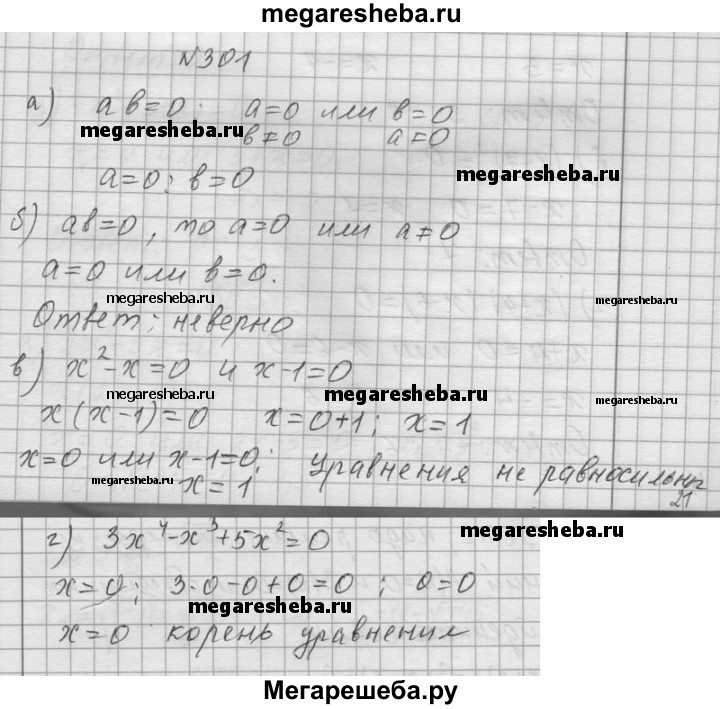 megaresheba.ru
№301
а) ав=0. а=0 или в=0
megaresheba.ru в≠0 а≠0
megaresheba.ru
а=0; в=0
б) ав=0, то а=0 или а≠0
а=0 или в=0.
megaresheba.ru megaresheba.ru
Ответ: неверно
в) x²-x=0 и x-1=0
megaresheba.ru megaresheba.ru
x(x-1)=0 x=0+1; x=1
x=0 или x-1=0; уравнения не равносильны
megaresheba.ru x=1
21
г) 3x⁴-x³+5x²=0
megaresheba.ru
x=0; 3·0-0+0=0; 0=0
megaresheba.ru
x=0 корень уравнения
Мегарешеба.ру